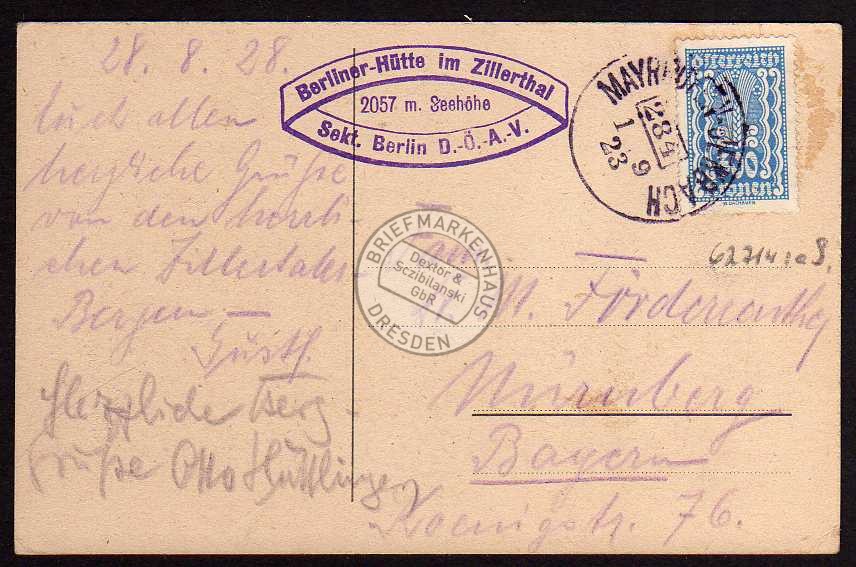 28. 8. 28.
Euch allen
herzliche Grüße
von den herrli-
chen Zillertaler
Bergen —
Gustl.
Herzliche Berg-
grüße Otto Hüttlinger
Berliner-Hütte im Zillerthal
2057 m. Seehöhe
Sekt. Berlin D.-Ö.-A.-V.
MAYRHOF
284
1 9
23
BACH
Österreich
BRIEFMARKENHAUS
Dextor &
Sczibilanski
GbR
DRESDEN
Nürnberg
Bayern
Koenigstr. 76.